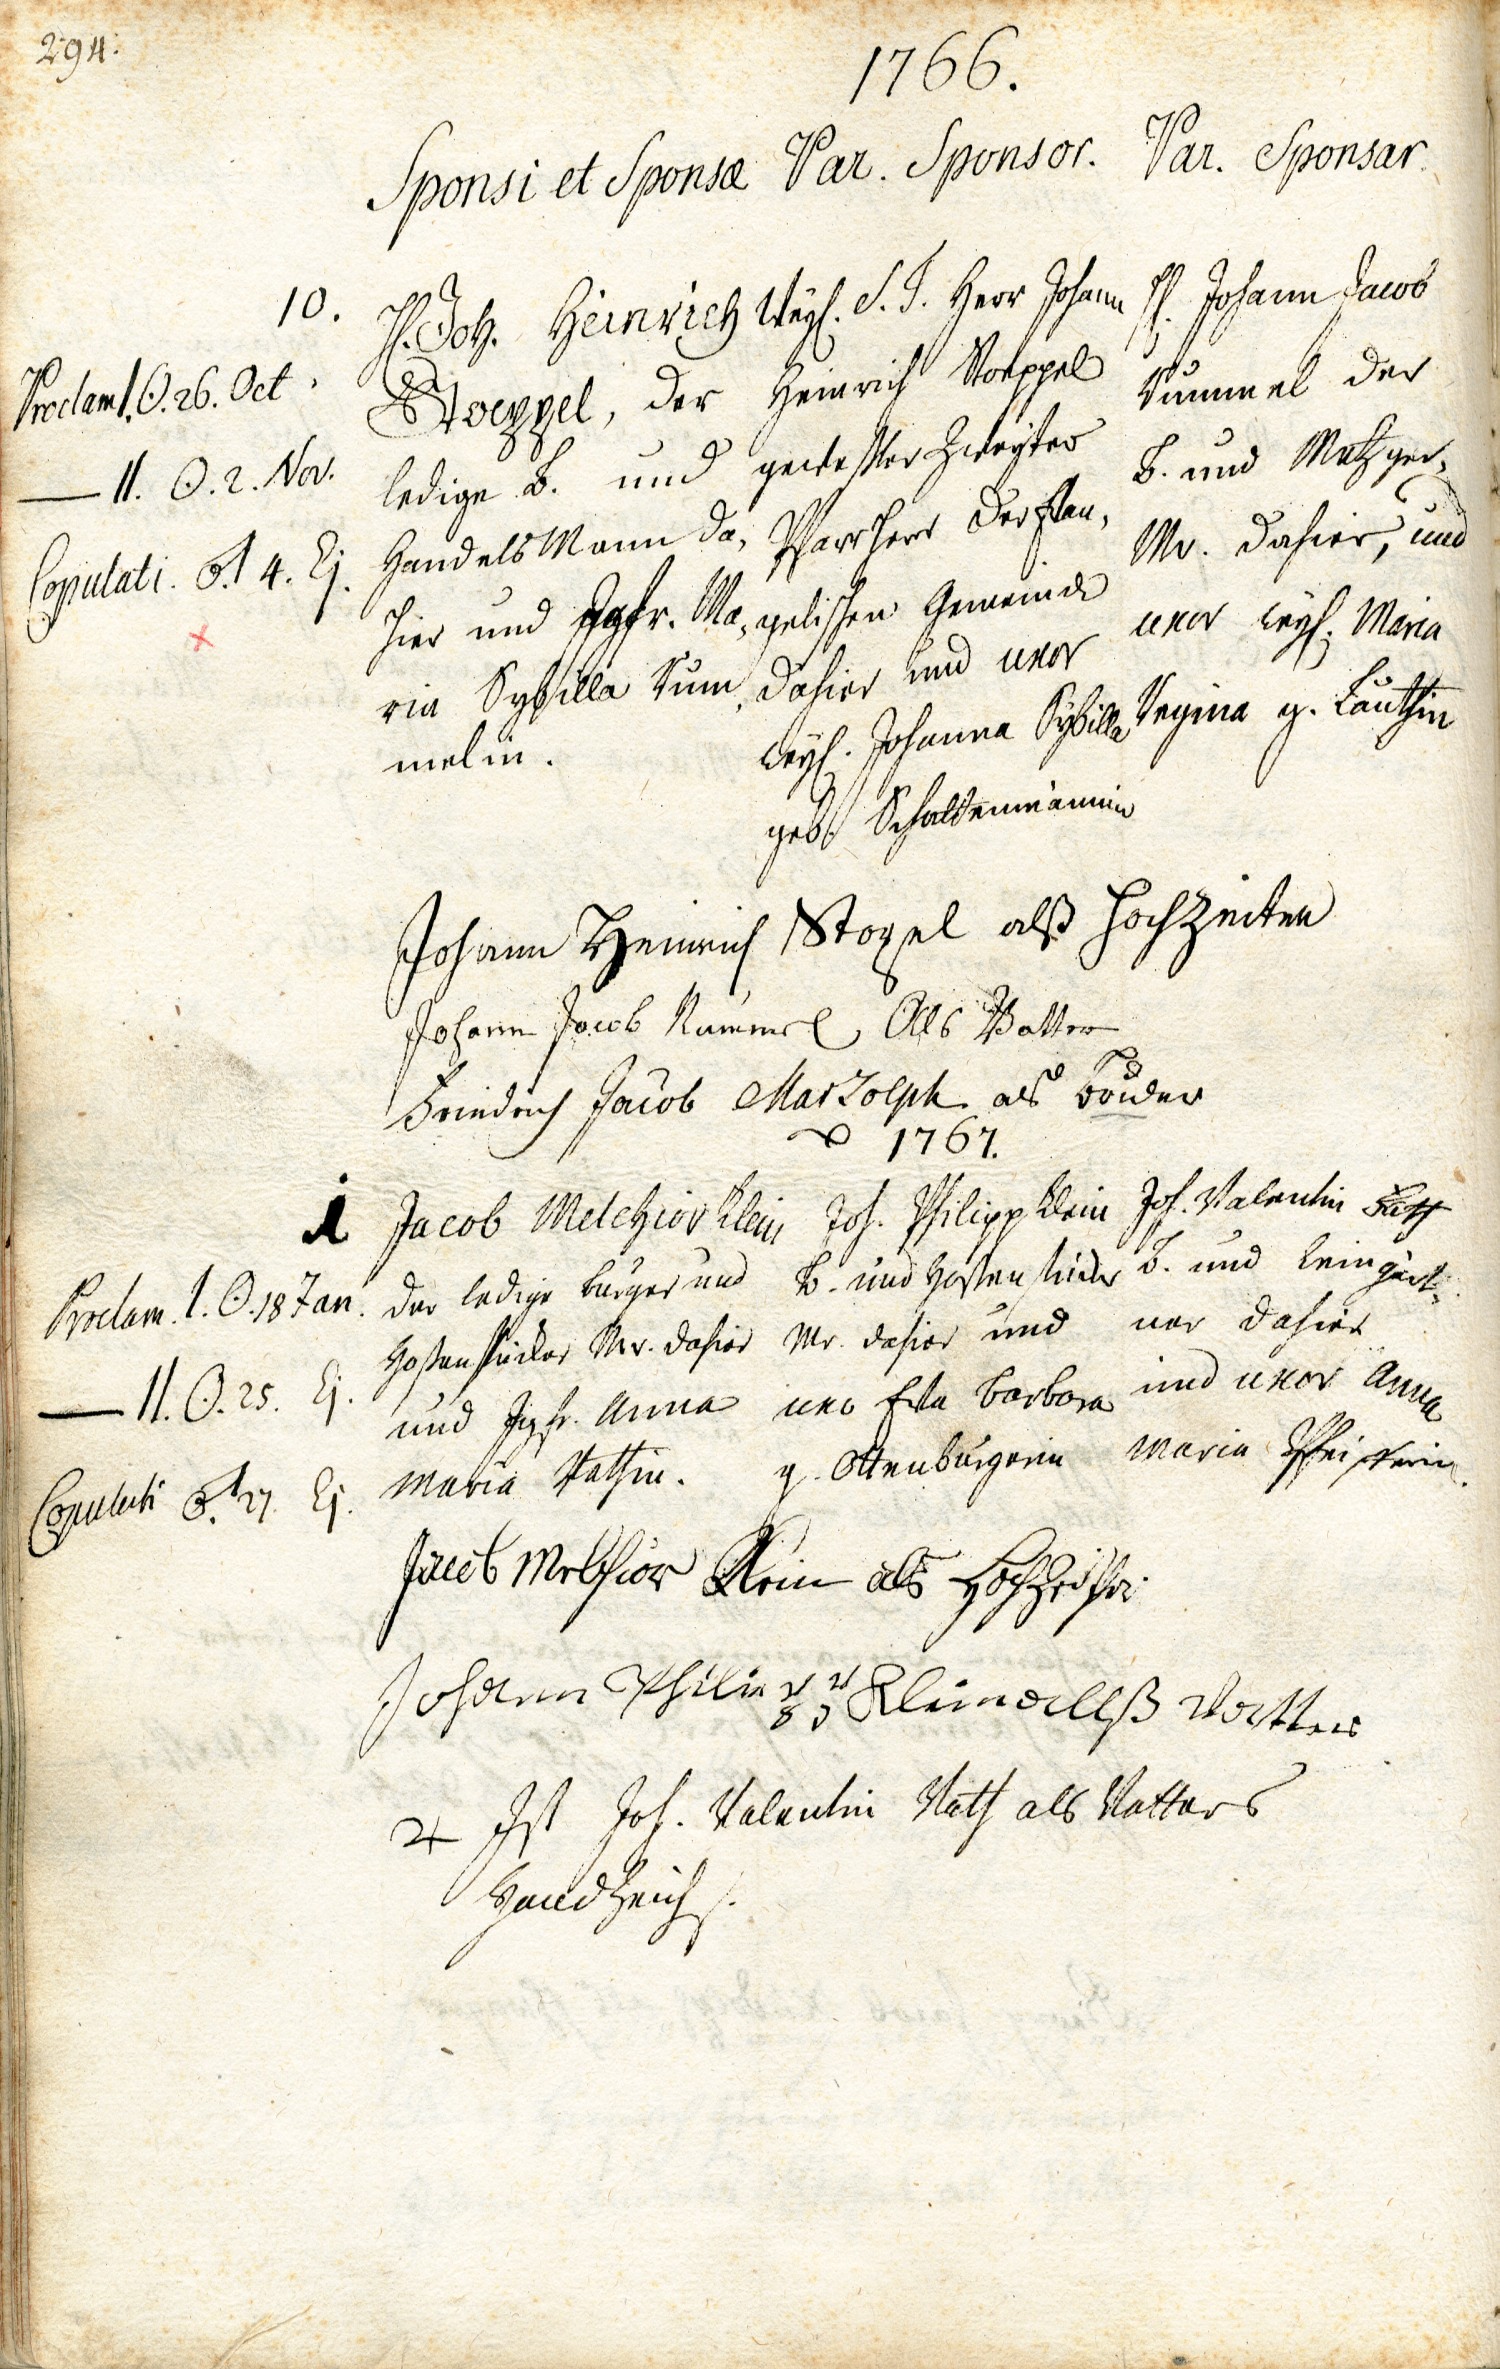 294.
1766.
Sponsi et Sponsæ Par. Sponsor. Par. Sponsar.
10.
Proclam. I. ☉. 26. Oct.
— II. ☉. 2. Nov.
Copulati. ♂. 4. Ej.
H. Joh. Heinrich
Stoeppel, der
ledige B. und
Handels Mann da,
hier und Jgfr. Ma,
ria Sybilla Rum,
melin.
Weyl. S. T. Herr Johann
Heinrich Stoeppel
geweßter Zweyter
Pfarrherr der Evan,
gelischen Gemeinde
dahier und uxor
weyl. Johanna Sybilla
geb. Schattenmännin
H. Johann Jacob
Rummel der
B. und Metzger,
Mr. dahier, und
uxor weyl. Maria
Regina g. Lauthin
Johann Heinrich Stopel alß Hochzeiter
Johann Jacob Rummel Als Vatter
Friedrich Jacob Marzolph als Bruder
1767.
1
Proclam. I. ☉. 18 Jan.
— II. ☉. 25. Ej.
Copulati ♂. 27. Ej.
Jacob Melchior Klein
der ledige burger und
Hosenstricker Mr. dahier
und Jgfr. Anna
Maria Rathin.
Joh. Philipp Klein
B. und Hosenstricker
Mr. dahier und
uxo Eva Barbara
g. Ottenburgerin
Joh. Valentin
B. und Reingärt,
ner dahier
und uxor Anna
Maria Pfeisterin.
Jacob Melchior Klein als Hochzeiter
Johann Philipp Klein allß Vatter
Ist Joh. Valentin Rath als Vatters
Handzeichen.